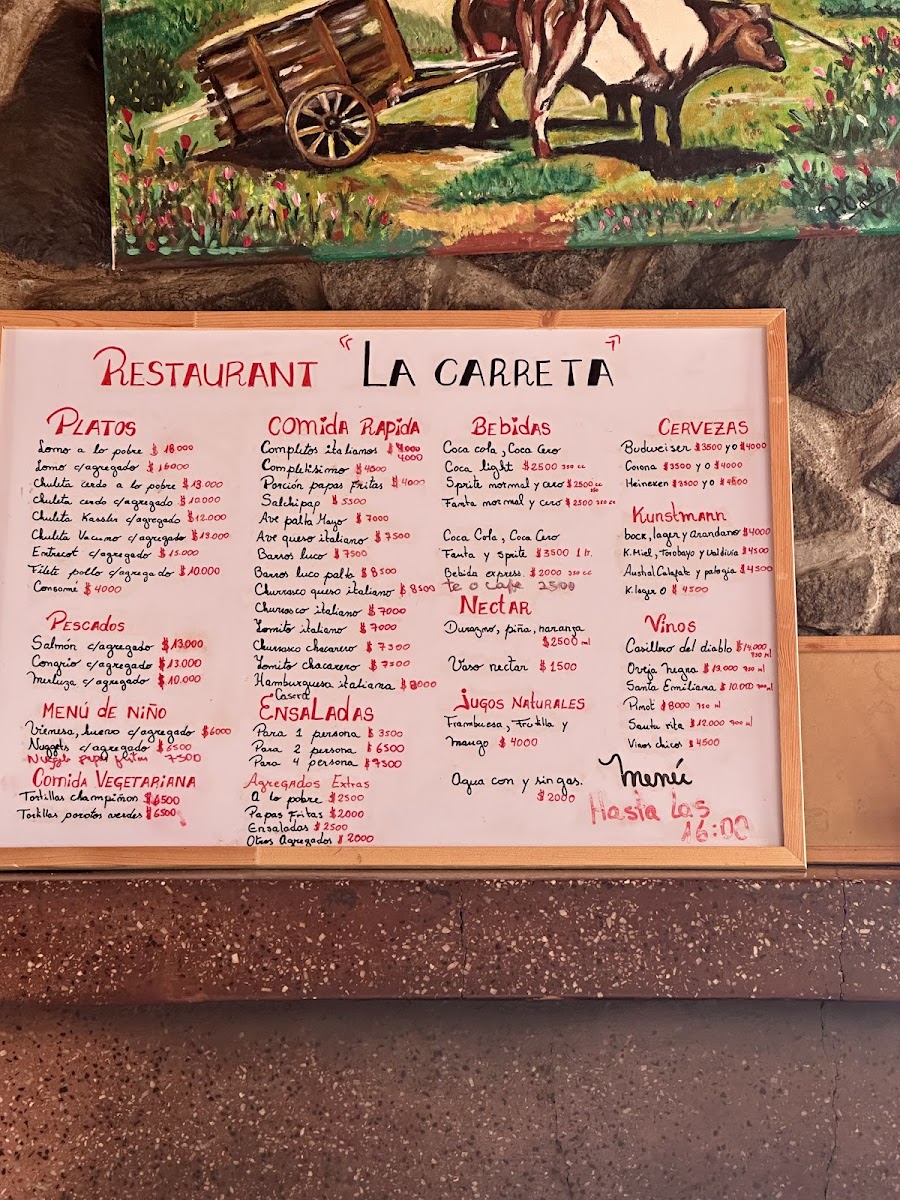 RESTAURANT "LA CARRETA"
PLATOS
Lomo a lo pobre $ 18.000
Lomo c/agregado $ 16000
Chuleta cerdo a lo pobre $ 13.000
Chuleta cerdo c/agregado $ 10.000
Chuleta Kassler c/agregado $ 12.000
Chuleta Vacuno c/agregado $ 13.000
Entrecot c/agregado $ 15.000
Filete pollo c/agregado $ 10.000
Consomé $ 4000
PESCADOS
Salmón c/agregado $ 13.000
Congrio c/agregado $ 13.000
Merluza c/agregado $ 10.000
MENÚ DE NIÑO
Vienesa, huevo c/agregado $ 6000
Nuggets c/agregado $ 6500
Nuggets papas fritas 7500
COMIDA VEGETARIANA
Tortillas champiños $ 6500
Tortillas porotos verdes $ 6500
COMIDA RAPIDA
Completos italianos $ 4000
4000
Completisimo $ 4500
Porción papas fritas $ 4000
Salchipap $ 5500
Ave palta Mayo $ 7000
Ave queso italiano $ 7500
Barros luco $ 7500
Barros luco palta $ 8500
Churrasco queso italiano $ 8500
Churrasco italiano $ 7000
Lomito italiano $ 7000
Churrasco chacarero $ 7500
Lomito chacarero $ 7500
Hamburguesa italiana $ 8000
Casera
ENSALADAS
Para 1 persona $ 3500
Para 2 persona $ 6500
Para 4 persona $ 7500
Agregados Extras
A lo pobre $ 2500
Papas Fritas $ 2000
Ensaladas $ 2500
Otros Agregados $ 2000
BEBIDAS
Coca cola, Coca Cero
Coca light $ 2500 350 cc
Sprite normal y cero $ 2500 cc
350
Fanta normal y cero $ 2500 350 cc
Coca Cola, Coca Cero
Fanta y Sprite $ 3500 1 lt.
Bebida express. $ 2000 250 cc
Te o Cafe 2500
NECTAR
Durazno, piña, naranja
$ 2500 ml
Vaso nectar $ 1500
JUGOS NATURALES
Frambuesa, Frutilla y
Mango $ 4000
Agua con y sin gas.
$ 2000
CERVEZAS
Budweiser $ 3500 y 0 $ 4000
Corona $ 3500 y 0 $ 4000
Heineken $ 3500 y 0 $ 4500
KUNSTMANN
bock, lager y arandano $ 4000
K. Miel, Torobayo y Valdivia $ 4500
Austral Calafate y patagia $ 4500
K. lager 0 $ 4500
VINOS
Casillero del diablo $ 14.000
750 ml
Oveja Negra $ 13.000 750 ml
Santa Emiliana $ 10.000 700 ml
Pinot $ 8000 750 ml
Santa rita $ 12.000 700 ml
Vinos chicos $ 4500
Menú
Hasta las
16:00